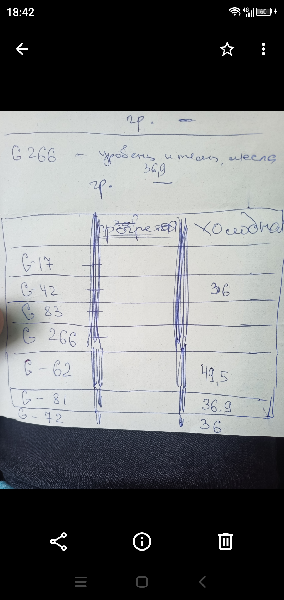 18:42
гр. —
G 266 - уровень и темп. масла
гр. —
холодная
G-17
G-42 36
G 83
G 266
G-62 49,5
G-81 36.9
G-72 36